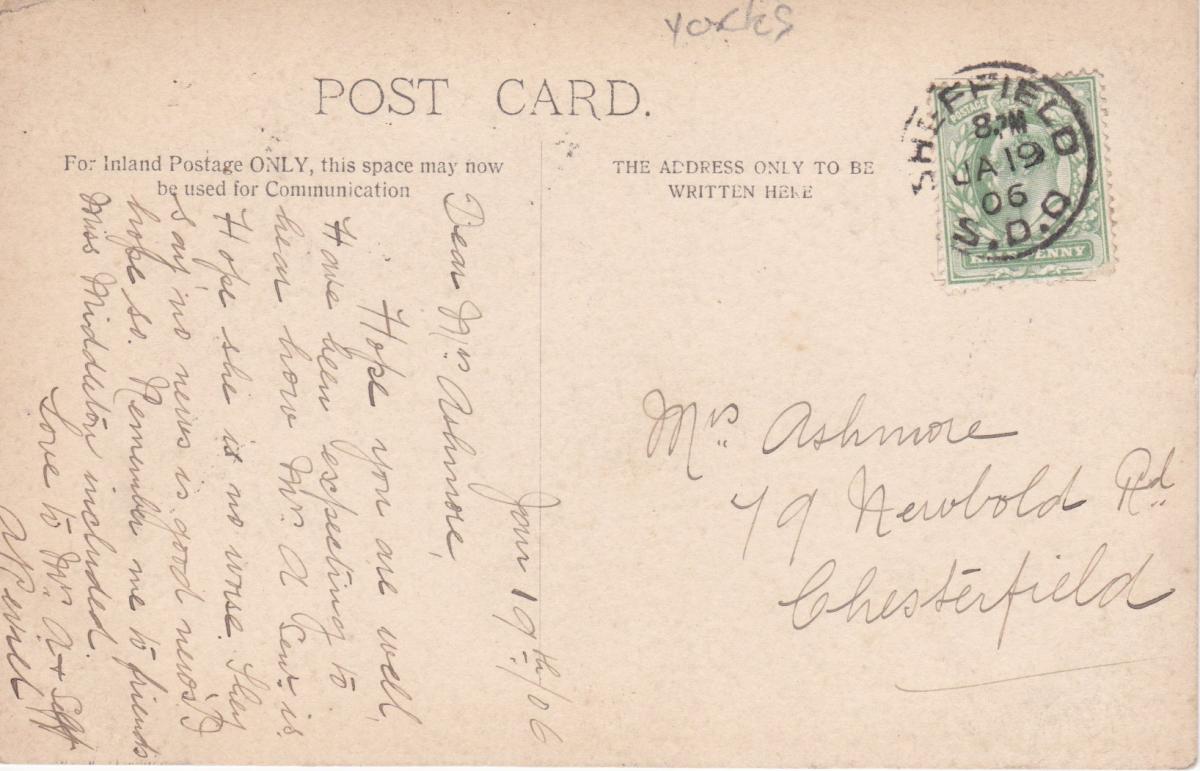 Yorks
POST CARD.
For Inland Postage ONLY, this space may now
be used for Communication
THE ADDRESS ONLY TO BE
WRITTEN HERE
SHEFFIELD
8. PM
JA 19
06
S.D.O
POSTAGE
PENNY
Mrs Ashmore
79 Newbold Rd
Chesterfield
Jany 19th/06
Dear Mrs Ashmore,
Hope you are well,
Have been expecting to
hear how Mrs. A Senr is
Hope she is no worse. They
say no news is good news &
hope so. Remember me to friends
Miss Middleton included.
Love to Mrs. A & Self